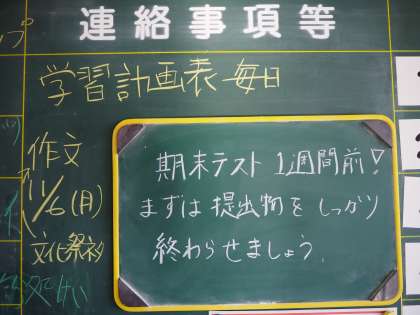 連絡事項等
学習計画表 毎日
作文
11/6(月)
文化祭
期末テスト1週間前!
まずは提出物をしっかり
終わらせましょう。